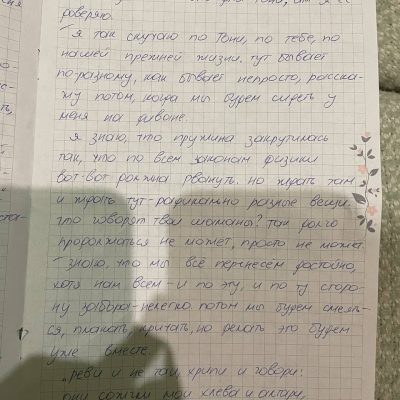 доверяю.
"я так скучаю по Тони, по тебе, по
нашей прежней жизни. тут бывает
по-разному, как бывает непросто, расска-
жу потом, когда мы будем сидеть у
меня на диване.
я знаю, что пружина закрутилась
так, что по всем законам физики
вот-вот должна рвануть. но ждать там
и ждать тут - радикально разные вещи.
что говорят твои шаманы? так долго
продолжаться не может, просто не может
"знаю, что мы всё перенесём достойно,
хотя нам всем - и по эту, и по ту сторо-
ну забора - нелегко. потом мы будем смеять-
ся, плакать, кричать, но делать это будем
уже вместе.
"реви и не таи, хрипи и говори:
они сожгли мои хлева и алтари,